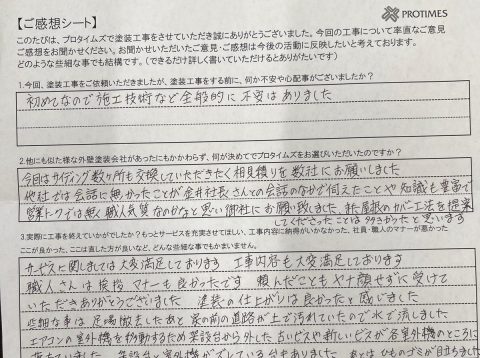 【ご感想シート】
PROTIMES
このたびは、プロタイムズで塗装工事をさせていただき誠にありがとうございました。今回の工事について率直なご意見
ご感想をお聞かせください。お聞かせいただいたご意見・ご感想は今後の活動に反映したいと考えております。
どのような些細な事でも結構です。（できるだけ詳しく書いていただけるとありがたいです）
1.今回、塗装工事をご依頼いただきましたが、塗装工事をする前に、何か不安や心配事がございましたか？
初めてなので施工技術など全般的に不安はありました
2.他にも似た様な外壁塗装会社があったにもかかわらず、何が決めてでプロタイムズをお選びいただいたのですか？
今回はサイディング数ヶ所も交換していただきたく相見積りを数社にお願いしました
他社では会話に無かったことが金井社長さんとの会話のなかで伺えたことや知識も豊富で
営業トークでは無く職人気質なのかなと思い御社にお願い致しました。また、屋根のカバー工法を提案
してくださったことは助かったと思います
3.実際に工事を終えていかがでしたか？もっとサービスを充実させてほしい、工事内容に納得がいかなかった、社員・職人のマナーが悪かった
ここが良かった、ここは直した方が良いなど、どんな些細な事でもかまいません。
サービスに関しましては大変満足しております 工事内容も大変満足しております
職人さんは挨拶 マナーも良かったです 頼んだこともヤな顔せずに受けて
いただきありがとうございました 塗装の仕上がりは良かったと感じました
些細な事は足場撤去したあと家の前の道路が土で汚れていたので水で清しました
エアコンの室外機を移動するため架設台から外した古いビスや新しいビスが各室外機のところに
落ちていました 架設台と室外機がズレている台もありました あとはゴミが目立ちました